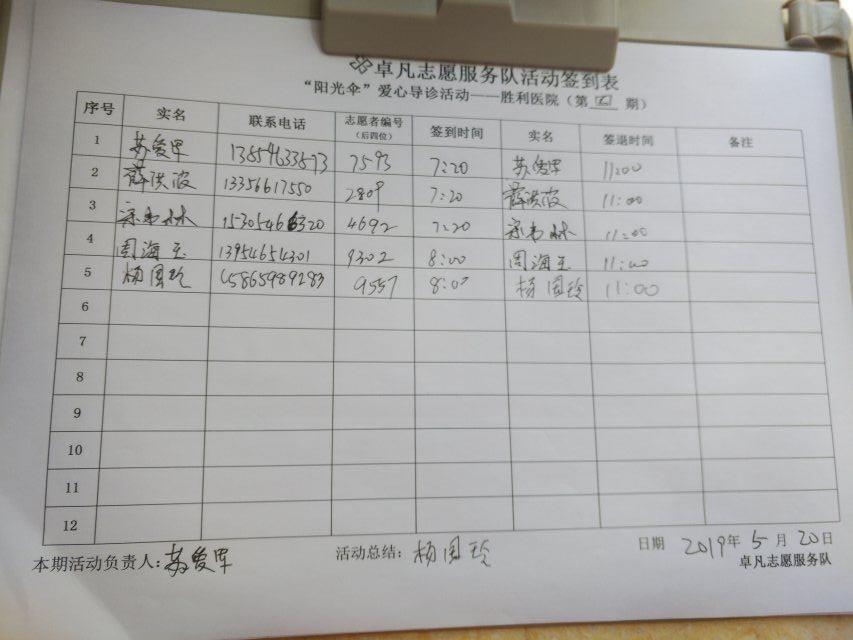 卓凡志愿服务队活动签到表
“阳光伞”爱心导诊活动——胜利医院（第 四 期）
序号 实名 联系电话 志愿者编号（后四位） 签到时间 实名 签退时间 备注
1 苏爱军 7593 7:20 苏爱军 11:00
2 薛洪波 13356617550 2809 7:20 薛洪波 11:00
3 4692 7:20 11:00
4 周海玉 13954654301 9302 8:00 周海玉 11:00
5 杨国玲 15865989283 9557 8:00 杨国玲 11:00
6
7
8
9
10
11
12
本期活动负责人：苏爱军 活动总结：杨国玲 日期 2019年 5 月 20日
卓凡志愿服务队